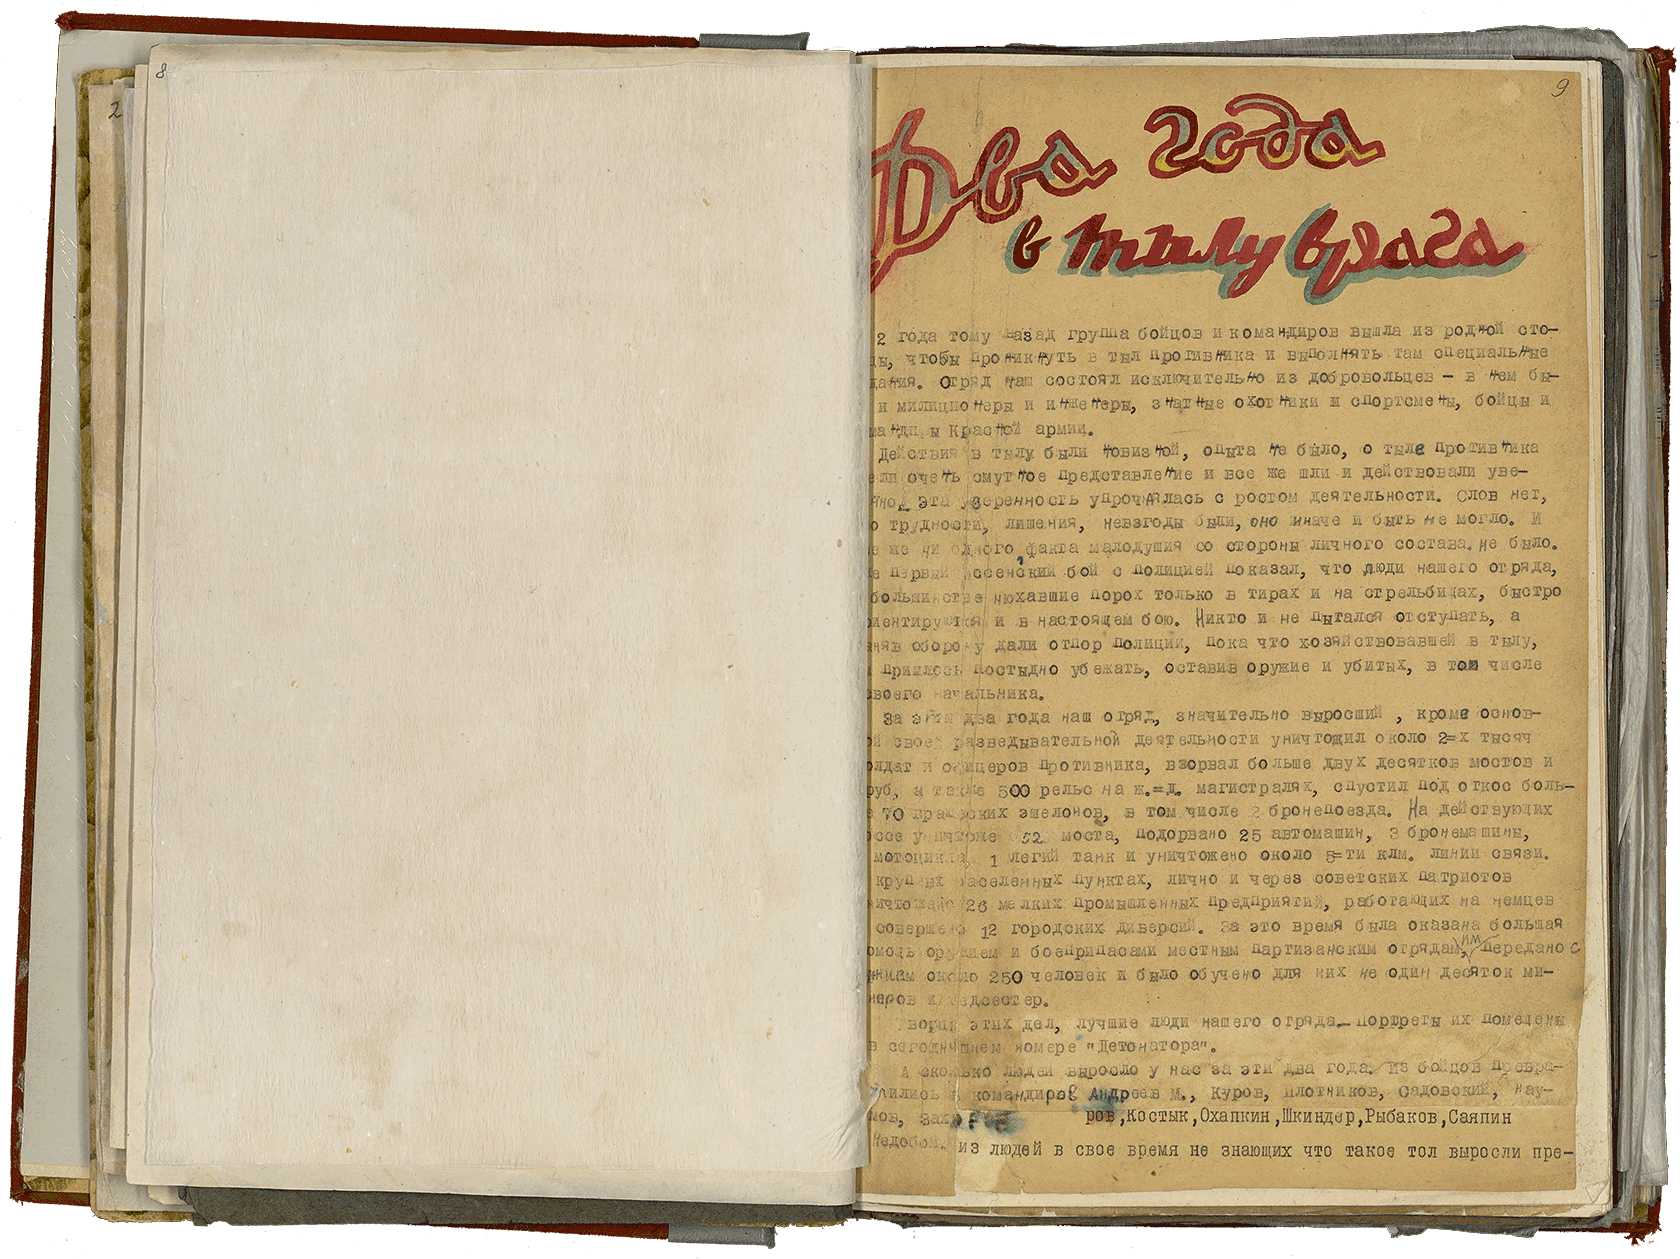 8
2
9
Два года
в тылу врага
2 года тому назад группа бойцов и командиров вышла из родной сто-
ды, чтобы проникнуть в тыл противника и выполнять там специальные
дания. Отряд наш состоял исключительно из добровольцев – в нем бы-
и милиционеры и инженеры, знатные охотники и спортсмены, бойцы и
манди ы Красной армии.
Действия в тылу были новизной, опыта не было, о тыле противника
ели очень смутное представление и все же шли и действовали уве-
нно. Эта уверенность упрочнялась с ростом деятельности. Слов нет,
о трудности, лишения, невзгоды были, оно иначе и быть не могло. И
е же ни одного факта малодушия со стороны личного состава не было.
е первый ссенский бой с полицией показал, что люди нашего отряда,
большинстве нюхавшие порох только в тирах и на стрельбищах, быстро
риентируются и в настоящем бою. Никто и не пытался отступать, а
няв оборону дали отпор полиции, пока что хозяйствовавшей в тылу,
пришлось постыдно убежать, оставив оружие и убитых, в том числе
своего начальника.
За эти два года наш отряд, значительно выросший , кроме основ-
ой своей разведывательной деятельности уничтожил около 2=х тысяч
олдат и офицеров противника, взорвал больше двух десятков мостов и
руб, а также 500 рельс на ж.=д. магистралях, спустил под откос боль-
е 70 вражеских эшелонов, в том числе 2 бронепоезда. На действующих
оссе уничтоже 52 моста, подорвано 25 автомашин, 3 бронемашины,
мотоцикла, 1 легий танк и уничтожено около 5=ти клм. линии связи.
крупных населенных пунктах, лично и через советских патриотов
ничтожено 26 мелких промышленных предприятий, работающих на немцев
совершено 12 городских диверсий. За это время была оказана большая
омощь оружием и боеприпасами местным партизанским отрядам, им передано с
около 250 человек и было обучено для них не один десяток ми-
неров и медсестер.
Творцы этих дел, лучшие люди нашего отряда – портреты их помещены
в сегодняшнем номере "Детонатора".
А сколько людей выросло у нас за эти два года. Из бойцов превра-
тились в командиров Андреев М., Куров, Плотников, Садовский, Нау-
мов, Зах ров,Костык,Охапкин,Шкиндер,Рыбаков,Саяпин
Недобой. из людей в свое время не знающих что такое тол выросли пре-